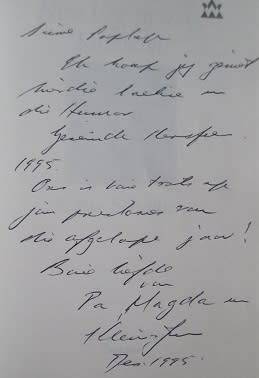 Ek hoop jy geniet
hierdie boekie en
die Humor
Geseënde Kersfees
1995.
Ons is baie trots op
jou prestasies van
die afgelope jaar!
Baie liefde
van
Pa, Magda en
Des. 1995.